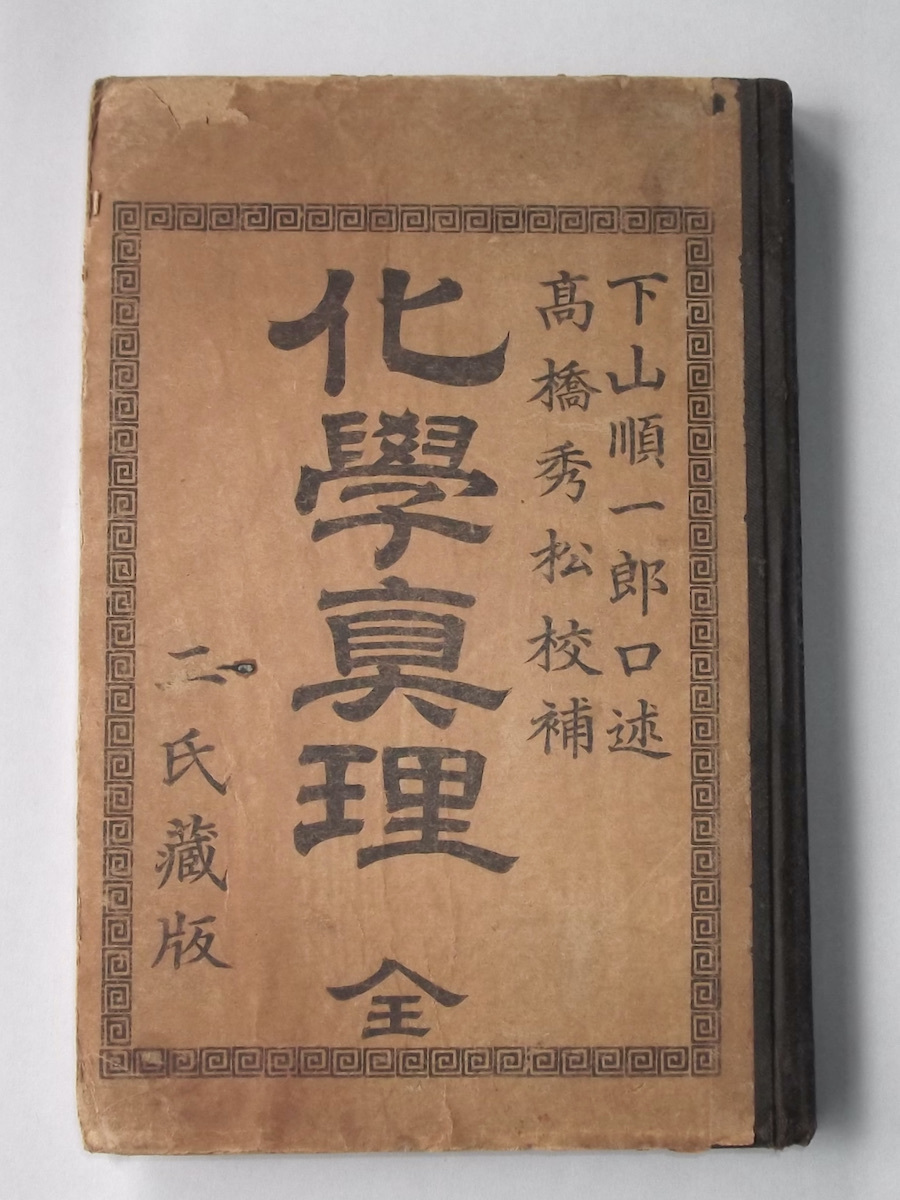 下山順一郎口述
髙橋秀松校補
化學眞理 全
二氏藏版